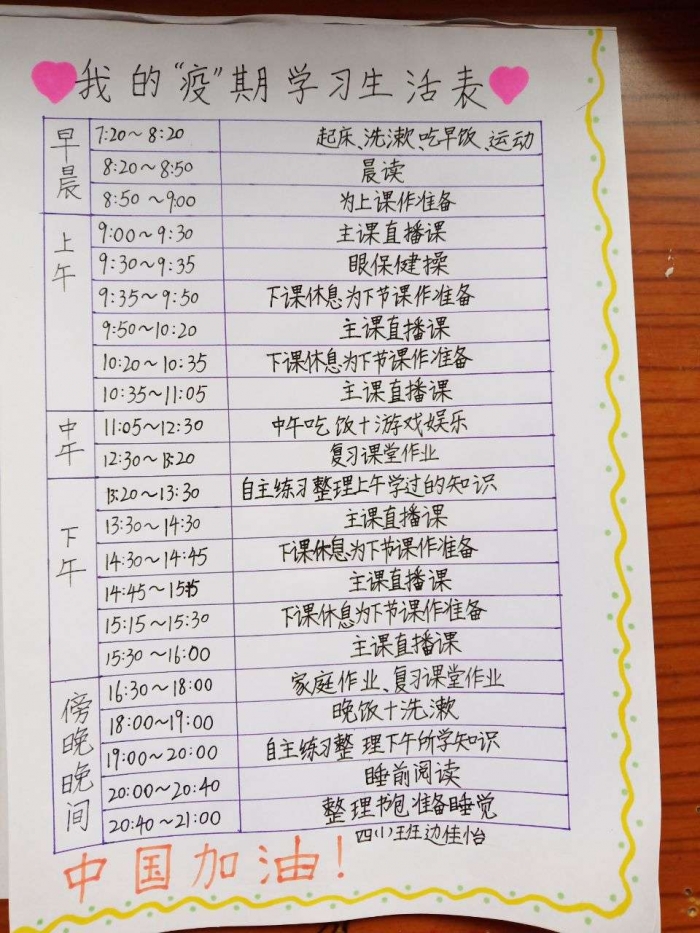 我的“疫”期学习生活表
早晨
7:20～8:20 起床、洗漱、吃早饭、运动
8:20～8:50 晨读
8:50～9:00 为上课作准备
上午
9:00～9:30 主课直播课
9:30～9:35 眼保健操
9:35～9:50 下课休息为下节课作准备
9:50～10:20 主课直播课
10:20～10:35 下课休息为下节课作准备
10:35～11:05 主课直播课
中午
11:05～12:30 中午吃饭+游戏娱乐
12:30～13:20 复习课堂作业
下午
13:20～13:30 自主练习整理上午学过的知识
13:30～14:30 主课直播课
14:30～14:45 下课休息为下节课作准备
14:45～15:15 主课直播课
15:15～15:30 下课休息为下节课作准备
15:30～16:00 主课直播课
傍晚晚间
16:30～18:00 家庭作业、复习课堂作业
18:00～19:00 晚饭+洗漱
19:00～20:00 自主练习整理下午所学知识
20:00～20:40 睡前阅读
20:40～21:00 整理书包准备睡觉
四(1)班 边佳怡
中国加油!